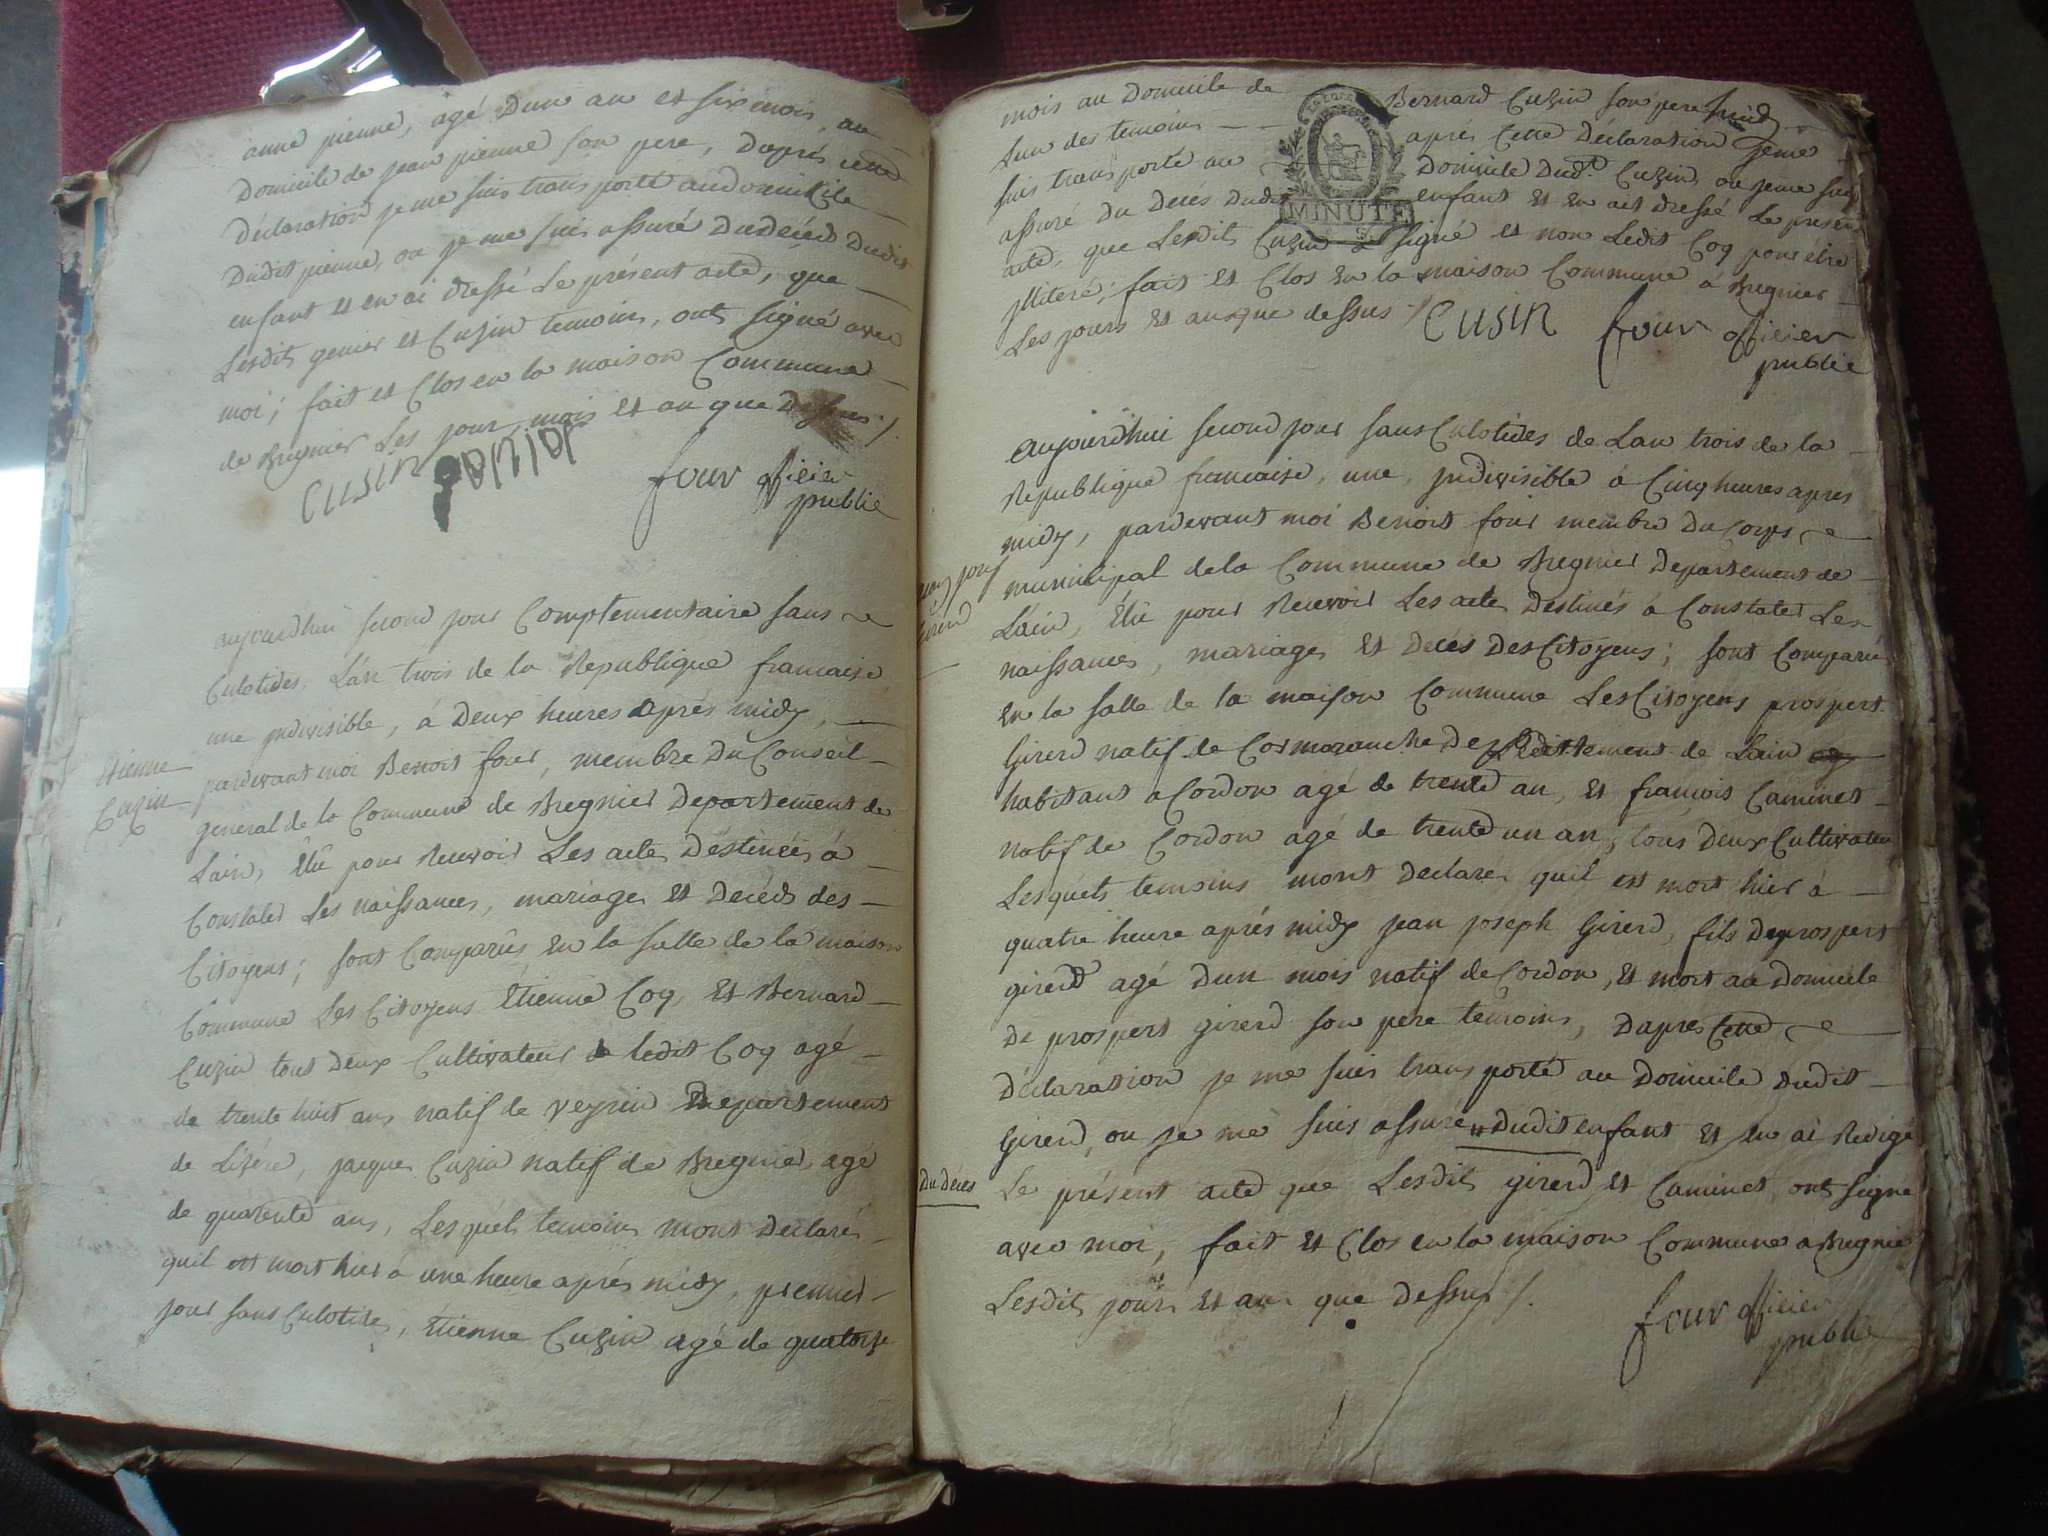 anne pienne, agé dun an et six mois, au
Domicile de jean pienne son pere, Daprés cette
Déclaration je me suis transporté audomicile
Dudit pienne, ou je me suis assuré Dudécéd Dudit
enfant et en ai dressé Le présent acte, que
Lesdits genier et Cuzin temoins, ont signé avec
moi; fait et Clos en la maison Commune
de Bregnier Les jour, mois et an que Dessus ./.
CUSIN
four officier
public
aujourdhui second jour Complementaire sans
Culotides Lan trois de la Republique francaise
une jndivisible, á Deux heures aprés midy,
pardevant moi Benoit four, membre Du Conseil
Etienne
Cuzin
général de la Commune de Bregnier Departement de
Lain, Élû pour Recevoir Les actes Déstinées á
Constater Les naissances, mariages et Décéd des
Citoyens; sont Comparûs En la salle de la maison
Commune Les Citoyens Etienne Coq, et Bernard
Cuzin tout Deux Cultivateur ledit Coq agé
de trente huit ans, natif de veyrin Departement
de Lizére, jacque Cuzin natif de Bregnier agé
de quarente ans, Lesquels temoins mont Déclarés
quil est mort hier a une heure aprés midy, premier
jour sans Culotide, Etienne Cuzin agé de quatorze
mois au Domicile de Bernard Cuzin son pere
Lun des temoins aprés Cette Déclaration jeme
suis transporté au Domicile Dud.t Cuzin, ou jeme suis
assuré Du Decés Dudit enfant et en ait dressé Le présent
acte, que Lesdits Cuzin a signé et non Ledit Coq pour étre
MINUTE
jlliteré; fait et Clos en la maison Commune á Bregnier
Les jours et anque dessus ./. CUSIN four officier
public
aujourdhui second jour sans Culotides de Lan trois de la
Republique francaise, une, jndivisible á Cinq heures apres
midy, pardevant moi Benoit four membre Du Corps
municipal dela Commune de Bregnier Departement de
jean jos
Girerd
Lain, Élû pour Recevoir Les actes Destinés á Constater Les
naissances, mariages et Decés Des Citoyens; sont Comparus
En la salle de la maison Commune Les Citoyens prospert
Girerd natif de Cormaranche Departement de Lain
habitant a Cordon agé de trente an, et francois Caminet
natif de Cordon agé de trente un an, tous Deux Cultivateu
Lesquels temoins mont Declarés quil est mort hier á
quatre heure aprés midy jean joseph Girerd, fils De prospert
girerd agé Dun mois natif de Cordon, et mort au Domicile
De prospert girerd son pere temoins, Dapres Cette
Déclaration je me suis transporté au Domicile dudit
Girerd, ou je me suis assuré # dudit enfant et en ai Redigé
# Du Deces
Le présent acte que Lesdits girerd et Caminet ont signé
avec moi, fait et Clos en la maison Commune a Bregnie
Lesdit jours et an que Dessus ./.
four officier
public